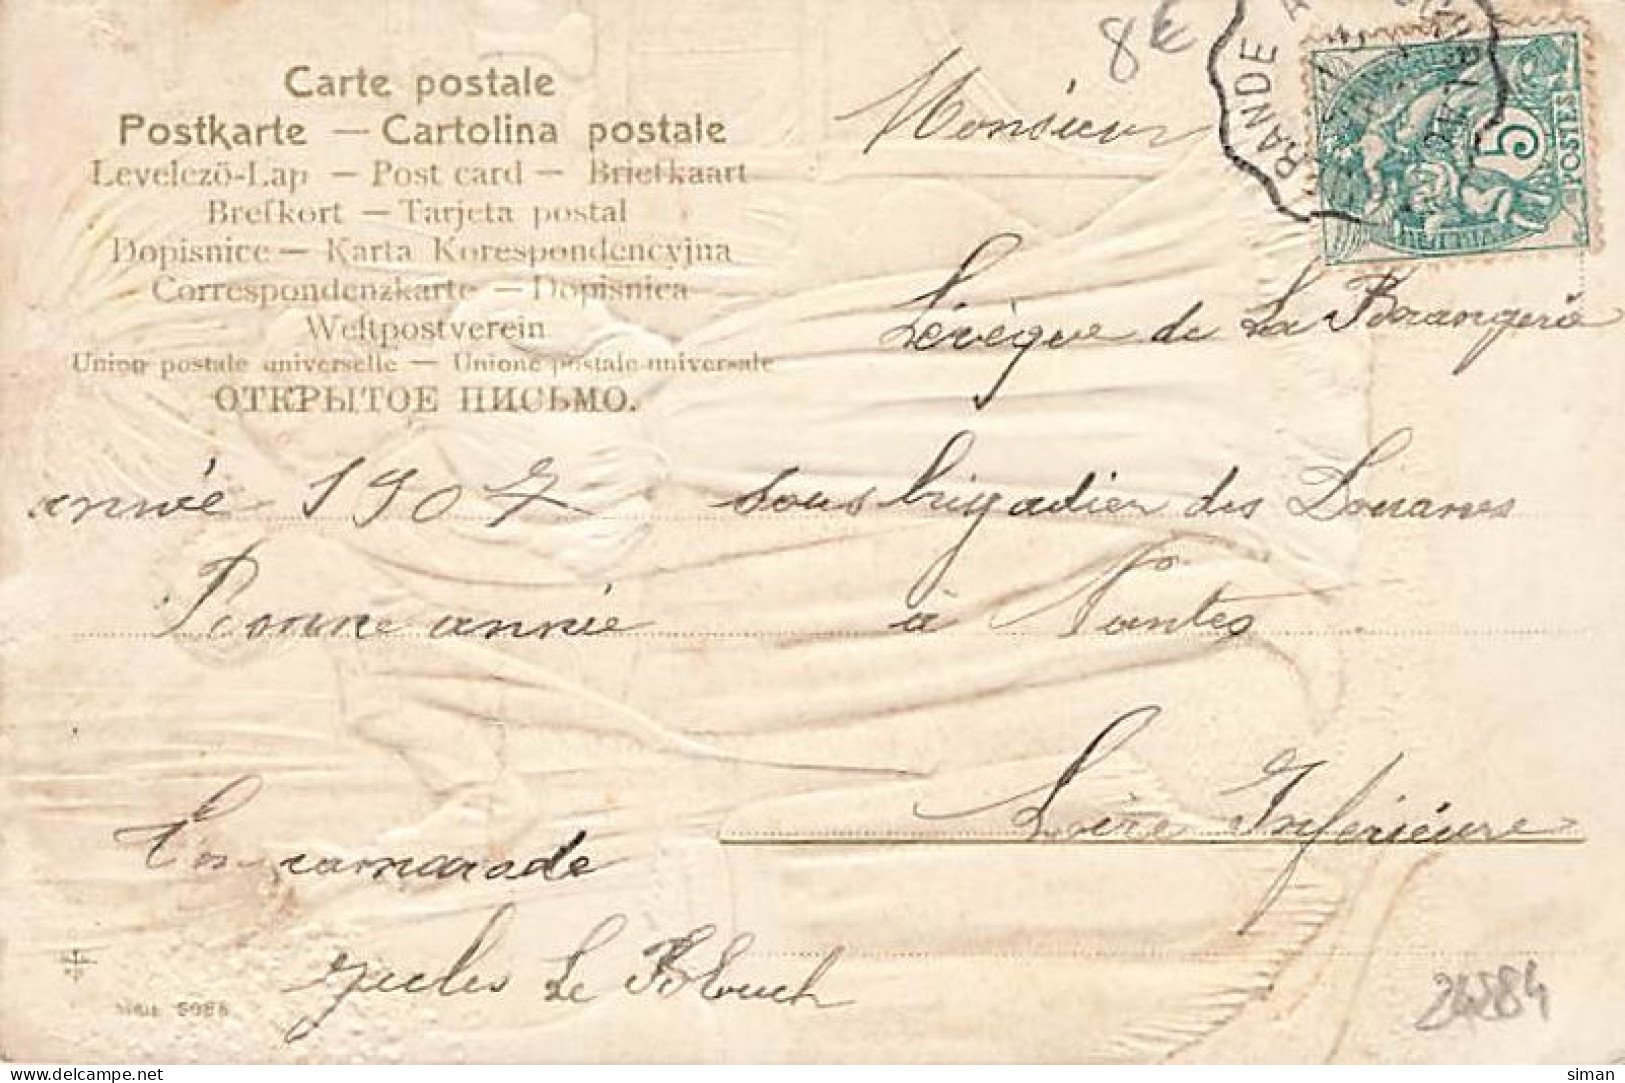 Carte postale
Postkarte — Cartolina postale
Levelezö-Lap — Post card — Briefkaart
Brefkort — Tarjeta postal
Dopisnice — Karta Korespondencyjna
Correspondenzkarte — Dopisnica
Weltpostverein
Union postale universelle — Unione postale universale
ОТКРЫТОЕ ПИСЬМО.
8€
GRANDE
5
POSTES
Monsieur
Lévêque de La Berangerie
sous brigadier des Douanes
à Nantes
Loire Inférieure
année 1907
Bonne année
Ton camarade
Jules Le Blouch
Serie 5086
24284
siman